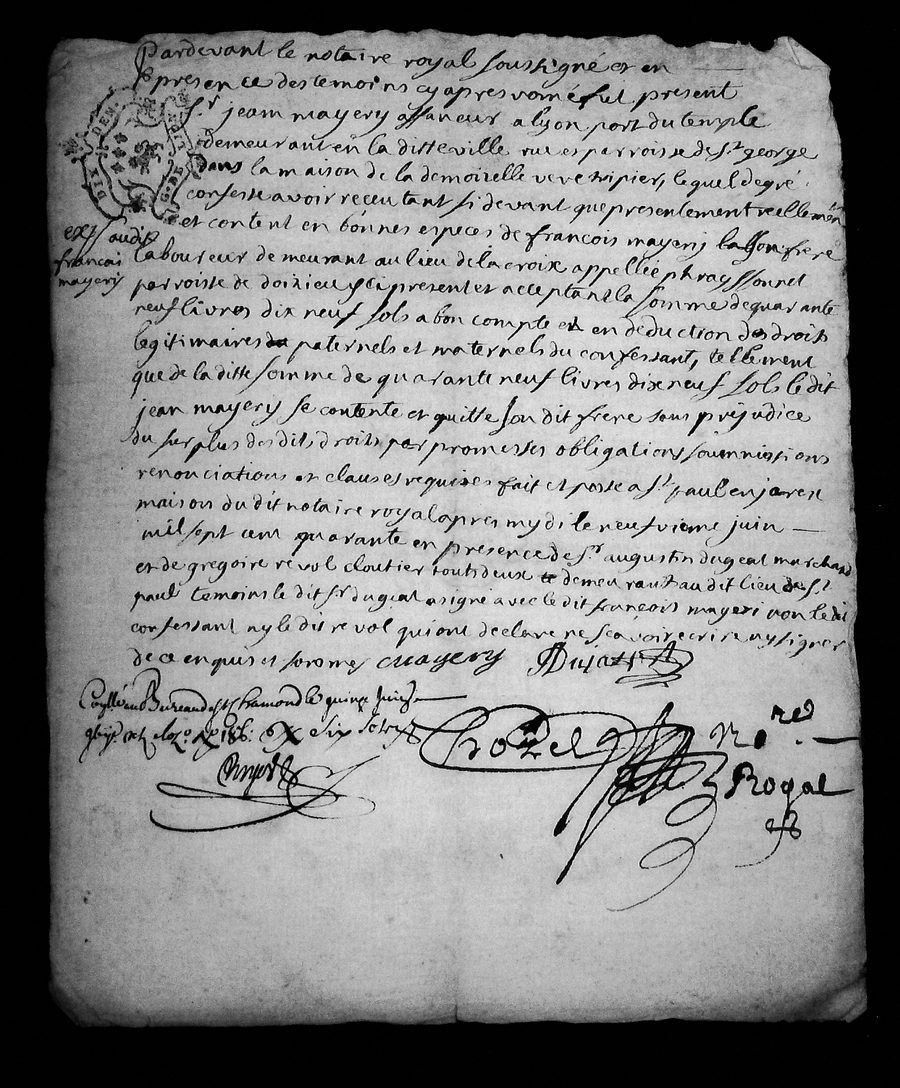 Pardevant le notaire royal soussigné et en
presence des temoins cy apres només fut present
Sr jean mayery affaneur a lyon port du temple
demeurant en la ditte ville rue et parroisse de St george
dans la maison de la demoiselle veve tripier, lequel de gré
confesse avoir receu tant si devant que presentement reellemen
et content en bonnes especes de francois mayery son frere
laboureur demeurant au lieu de la croix appellé
parroisse de doizieu yci present et acceptant la somme de quarante
neuf livres dix neuf sols a bon compte et en deduction des droits
legitimaires paternels et maternels du confessant, tellement
que de la ditte somme de quarante neuf livres dix neuf sols le dit
jean mayery se contente et quitte son dit frere sans prejudice
du surplus des dits droits par promesses obligations soumissions
renonciations et clauses requises fait et passe a St paul en jarest
maison du dit notaire royal apres mydi le neufvieme juin
mil sept cent quarante en presence de Sr augustin dugeat marchand
et de gregoire revol cloutier touts deux demeurants au dit lieu de St
paul temoins le dit Sr dugeat a signé avec le dit françois mayeri non le dit
confessant ny le dit revol qui ont declare ne scavoir ecrire ny signer
de ce enquis et sommes Mayery ADugeat
expt audit
francois
mayery
DIX DEN.
G. DE LION
Con̄llé au Bureau de St chamond le quinze juin
six sols
Crozet Nore
Royal